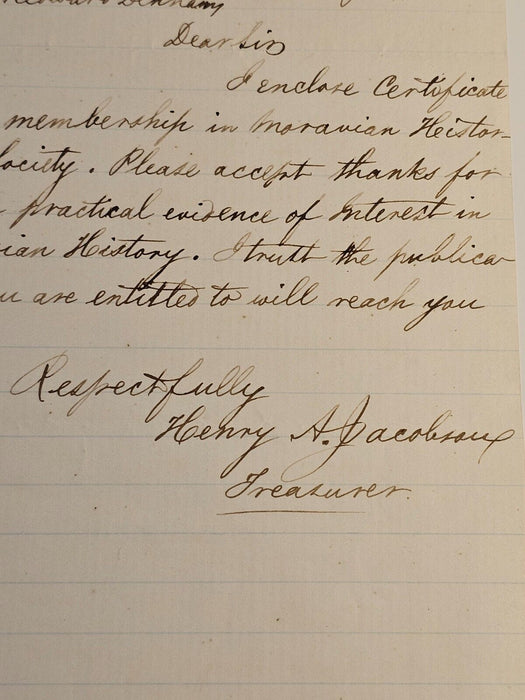 Denham,
Dear Sir
I enclose Certificate
membership in Moravian Histor-
Society. Please accept thanks for
practical evidence of Interest in
ian History. I trust the publica-
u are entitled to will reach you
Respectfully
Henry A. Jacobson
Treasurer.